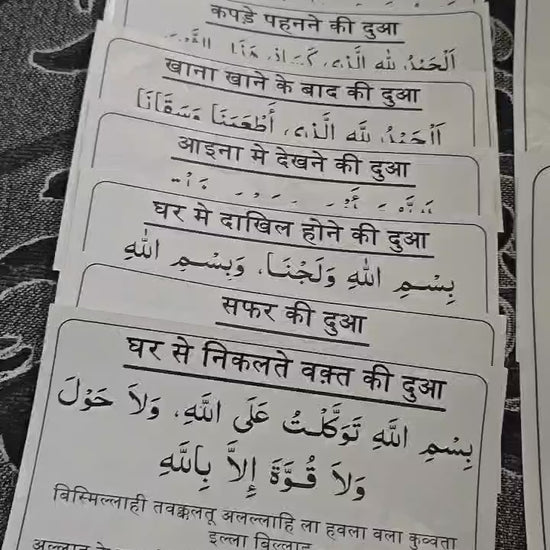 कपड़े पहनने की दुआ
اَلْحَمْدُ لِلّٰهِ الَّذِي
खाना खाने के बाद की दुआ
اَلْحَمْدُ لِلّٰهِ الَّذِي، أَطْعَمَنَا وَسَقَانَا
आइना मे देखने की दुआ
घर मे दाखिल होने की दुआ
بِسْمِ اللّٰهِ وَلَجْنَا، وَبِسْمِ اللّٰهِ
सफर की दुआ
घर से निकलते वक़्त की दुआ
بِسْمِ اللّٰهِ تَوَكَّلْتُ عَلَى اللّٰهِ، وَلَا حَوْلَ
وَلَا قُوَّةَ إِلَّا بِاللّٰهِ
बिस्मिल्लाही तवक्कलतू अलल्लाहि ला हवला वला कुव्वता
इल्ला बिल्लाह